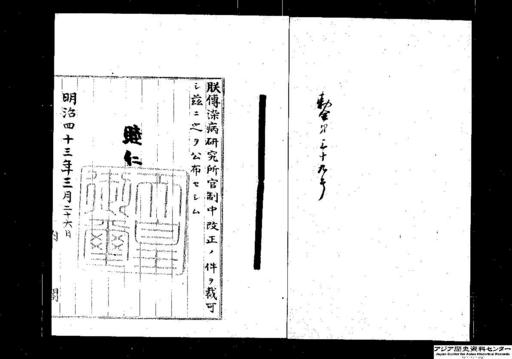 勅令第三十九号
朕傳染病研究所官制中改正ノ件ヲ裁可
シ茲ニ之ヲ公布セシム
睦仁
明治四十三年三月二十六日
内閣
アジア歴史資料センター
Japan Center for Asian Historical Records